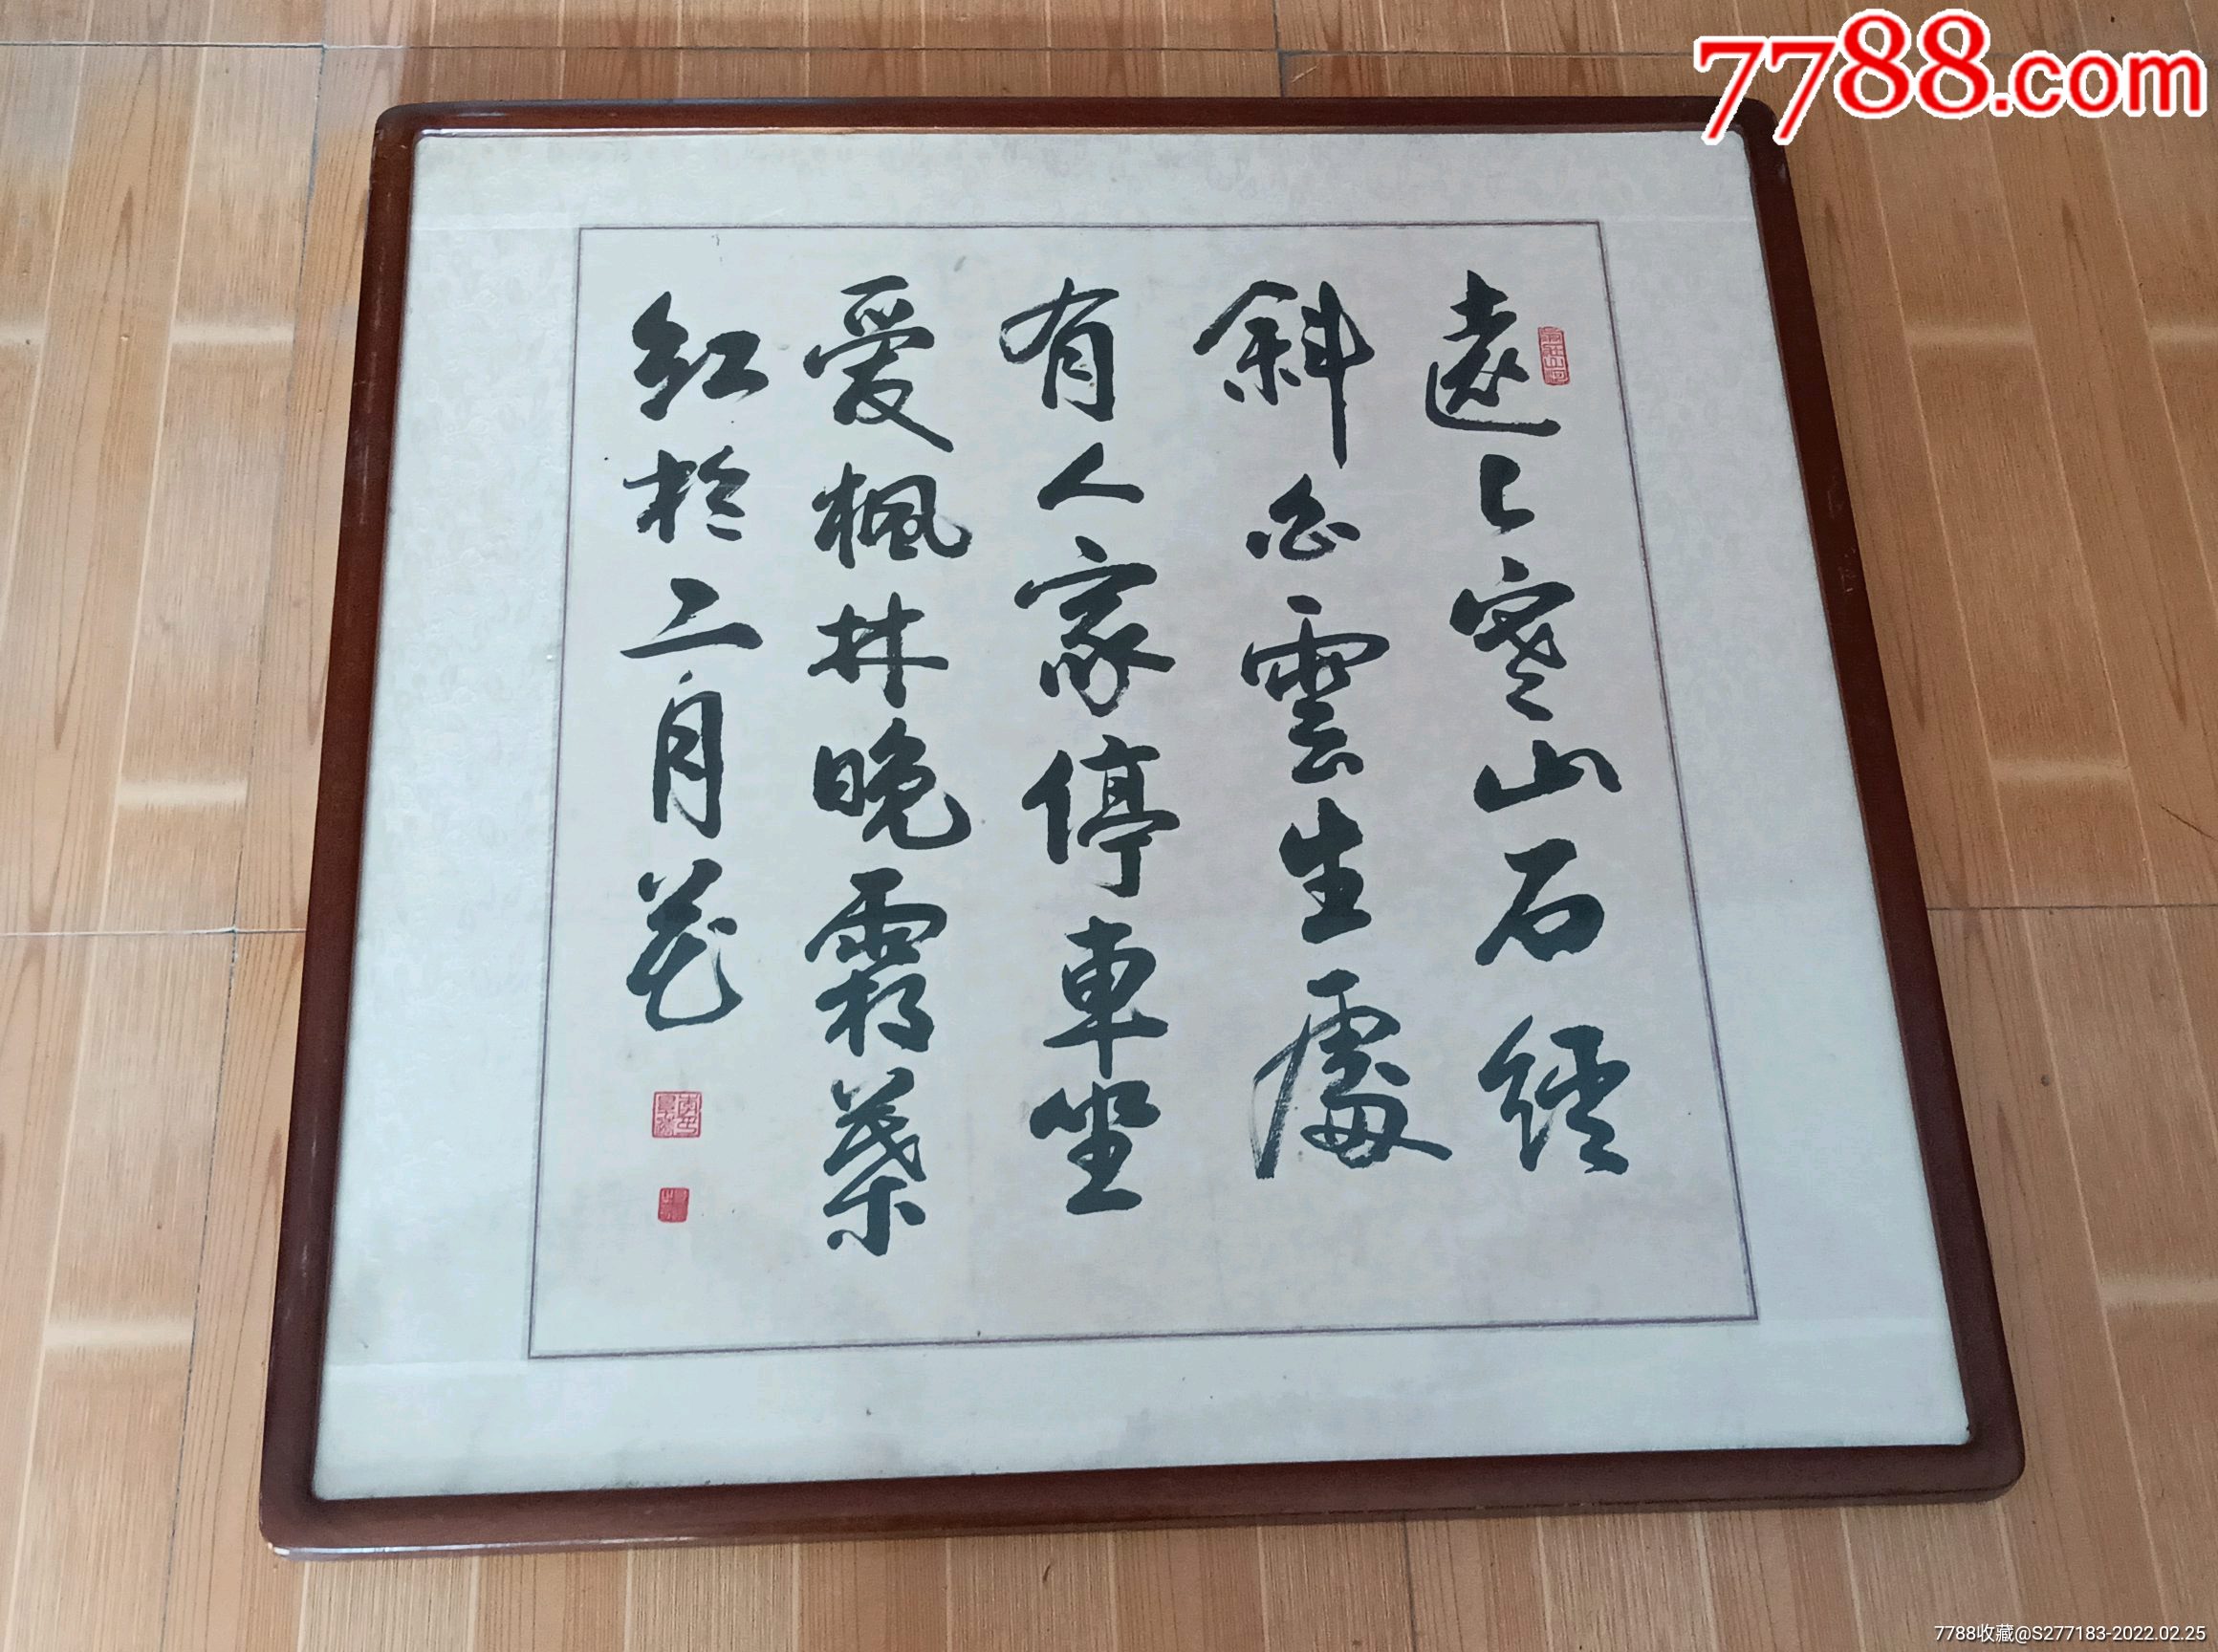 遠〻寒山石經
斜白雲生處
有人家停車坐
爱楓林晚霜葉
紅於二月花
7788.com
7788收藏@S277183-2022.02.25